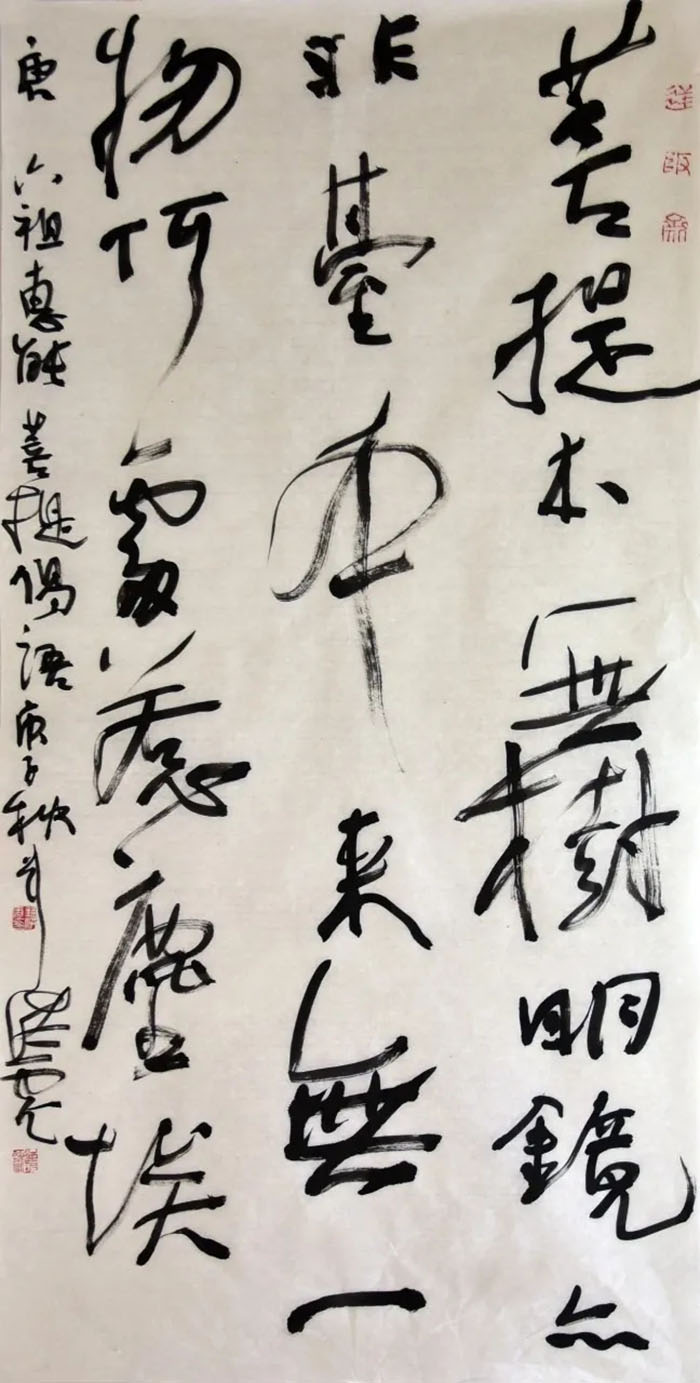 菩提本無樹明鏡亦
非臺本來無一
物何處惹塵埃
唐六祖惠能菩提偈語庚子秋